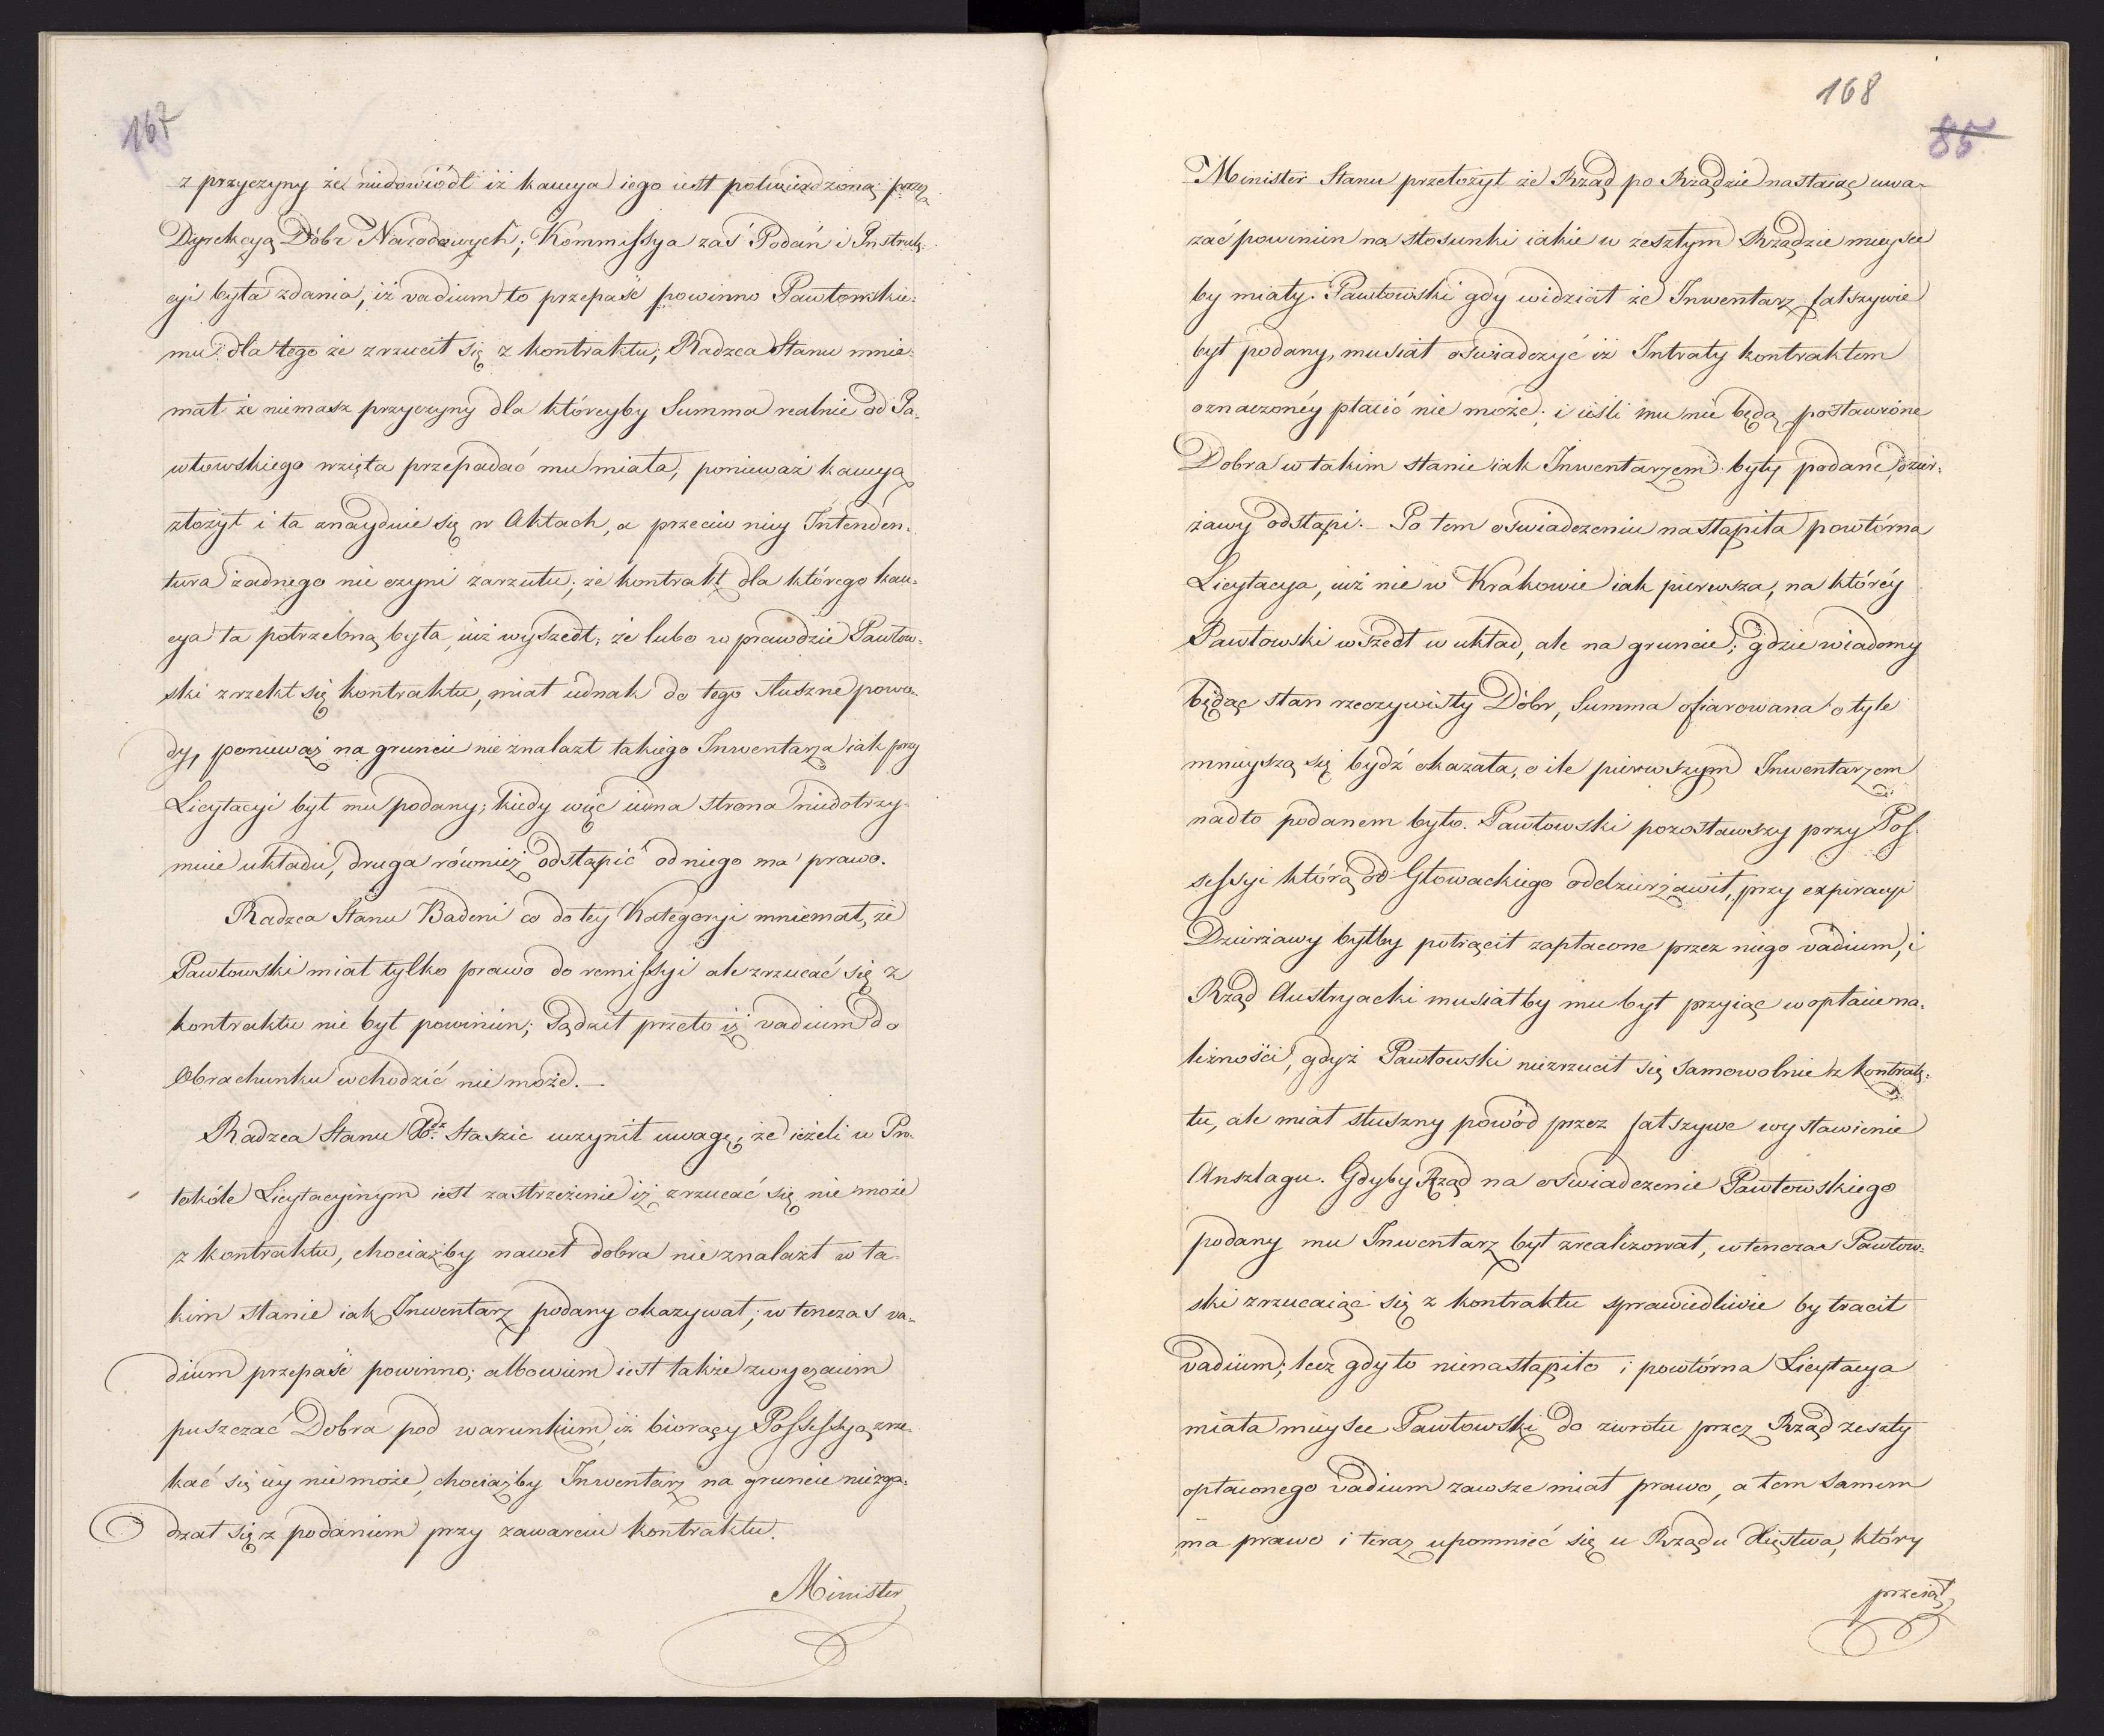 167
z przyczyny że niedowiódł iż kaucya iego iest potwierdzoną przez
Dyrekcyą Dóbr Narodowych; Kommissya zaś Podań i Instruk-
cyi była zdania, iż vadium to przepaść powinno Pawłowskie-
mu dla tego że zrzucił się z kontraktu; Radzca Stanu mnie-
mał że niemasz przyczyny dla któreyby Summa realnie od Pa-
włowskiego wzięta przepadać mu miała, ponieważ kaucyą
złożył i ta znayduie się w Aktach, a przeciw niey Intenden-
tura żadnego nie czyni zarzutu; że kontrakt dla którego kau-
cya ta potrzebną była, iuż wyszedł; że lubo w prawdzie Pawłow-
ski zrzekł się kontraktu, miał iednak do tego słuszne powo-
dy, ponieważ na gruncie nie znalazł takiego Inwentarza iak przy
Licytacyi był mu podany; kiedy więc iedna strona niedotrzy-
muie układu, druga również odstąpić od niego ma prawo.
Radzca Stanu Badeni co do tey Kategoryi mniemał, że
Pawłowski miał tylko prawo do remissyi ale zrzucać się z
kontraktu nie był powinien; Sądził przeto iż vadium do
Obrachunku wchodzić nie może.—
Radzca Stanu Staszic uczynił uwagę, że ieżeli w Pro-
tokóle Licytacyinym iest zastrzeżenie iż zrzucać się nie może
z kontraktu, chociażby nawet dobra nie znalazł w ta-
kim stanie iak Inwentarz podany okazywał; w tenczas va-
dium przepaść powinno; albowiem iest także zwyczaiem
puszczać Dobra pod warunkiem iż biorący Possessyą zrze-
kać się iey nie może, chociażby Inwentarz na gruncie niezga-
dzał się z podaniem przy zawarciu kontraktu.
Minister
168
85
Minister Stanu przełożył że Rząd po Rządzie nastaiąc uwa-
żać powinien na stosunki iakie w zeszłym Rządzie mieysce
by miały. Pawłowski gdy widział że Inwentarz fałszywie
był podany, musiał oświadczyć iż Intraty kontraktem
oznaczonéy płacić nie może; i ieśli mu nie będą postawione
Dobra w takim stanie iak Inwentarzem były podane, dzier-
żawy odstąpi.— Po tem oświadczeniu nastąpiła powtórna
Licytacya, iuż nie w Krakowie iak pierwsza, na któréy
Pawłowski wszedł w układ, ale na gruncie; gdzie wiadomy
będąc stan rzeczywisty Dóbr, Summa ofiarowana o tyle
mnieyszą się bydź okazała, o ile pierwszym Inwentarzem
nadto podanem było. Pawłowski pozostawszy przy Pos-
sessyi którą od Głowackiego oddzierżawił, przy expiracyi
Dzierżawy byłby potrącił zapłacone przez niego vadium, i
Rząd Austryacki musiałby mu był przyiąć w opłacie na-
leżności, gdyż Pawłowski niezrzucił się samowolnie z kontrak-
tu, ale miał słuszny powód przez fałszywe wystawienie
Anszlagu. Gdyby Rząd na oświadczenie Pawłowskiego
podany mu Inwentarz był zrealizował, wtenczas Pawłow-
ski zrzucaiąc się z kontraktu sprawiedliwie by tracił
vadium; lecz gdy to nienastąpiło i powtórna Licytacya
miała mieysce Pawłowski do zwrotu przez Rząd zeszły
opłaconego vadium zawsze miał prawo, a tem samem
ma prawo i teraz upomnieć się u Rządu Xięstwa, który
przeiął